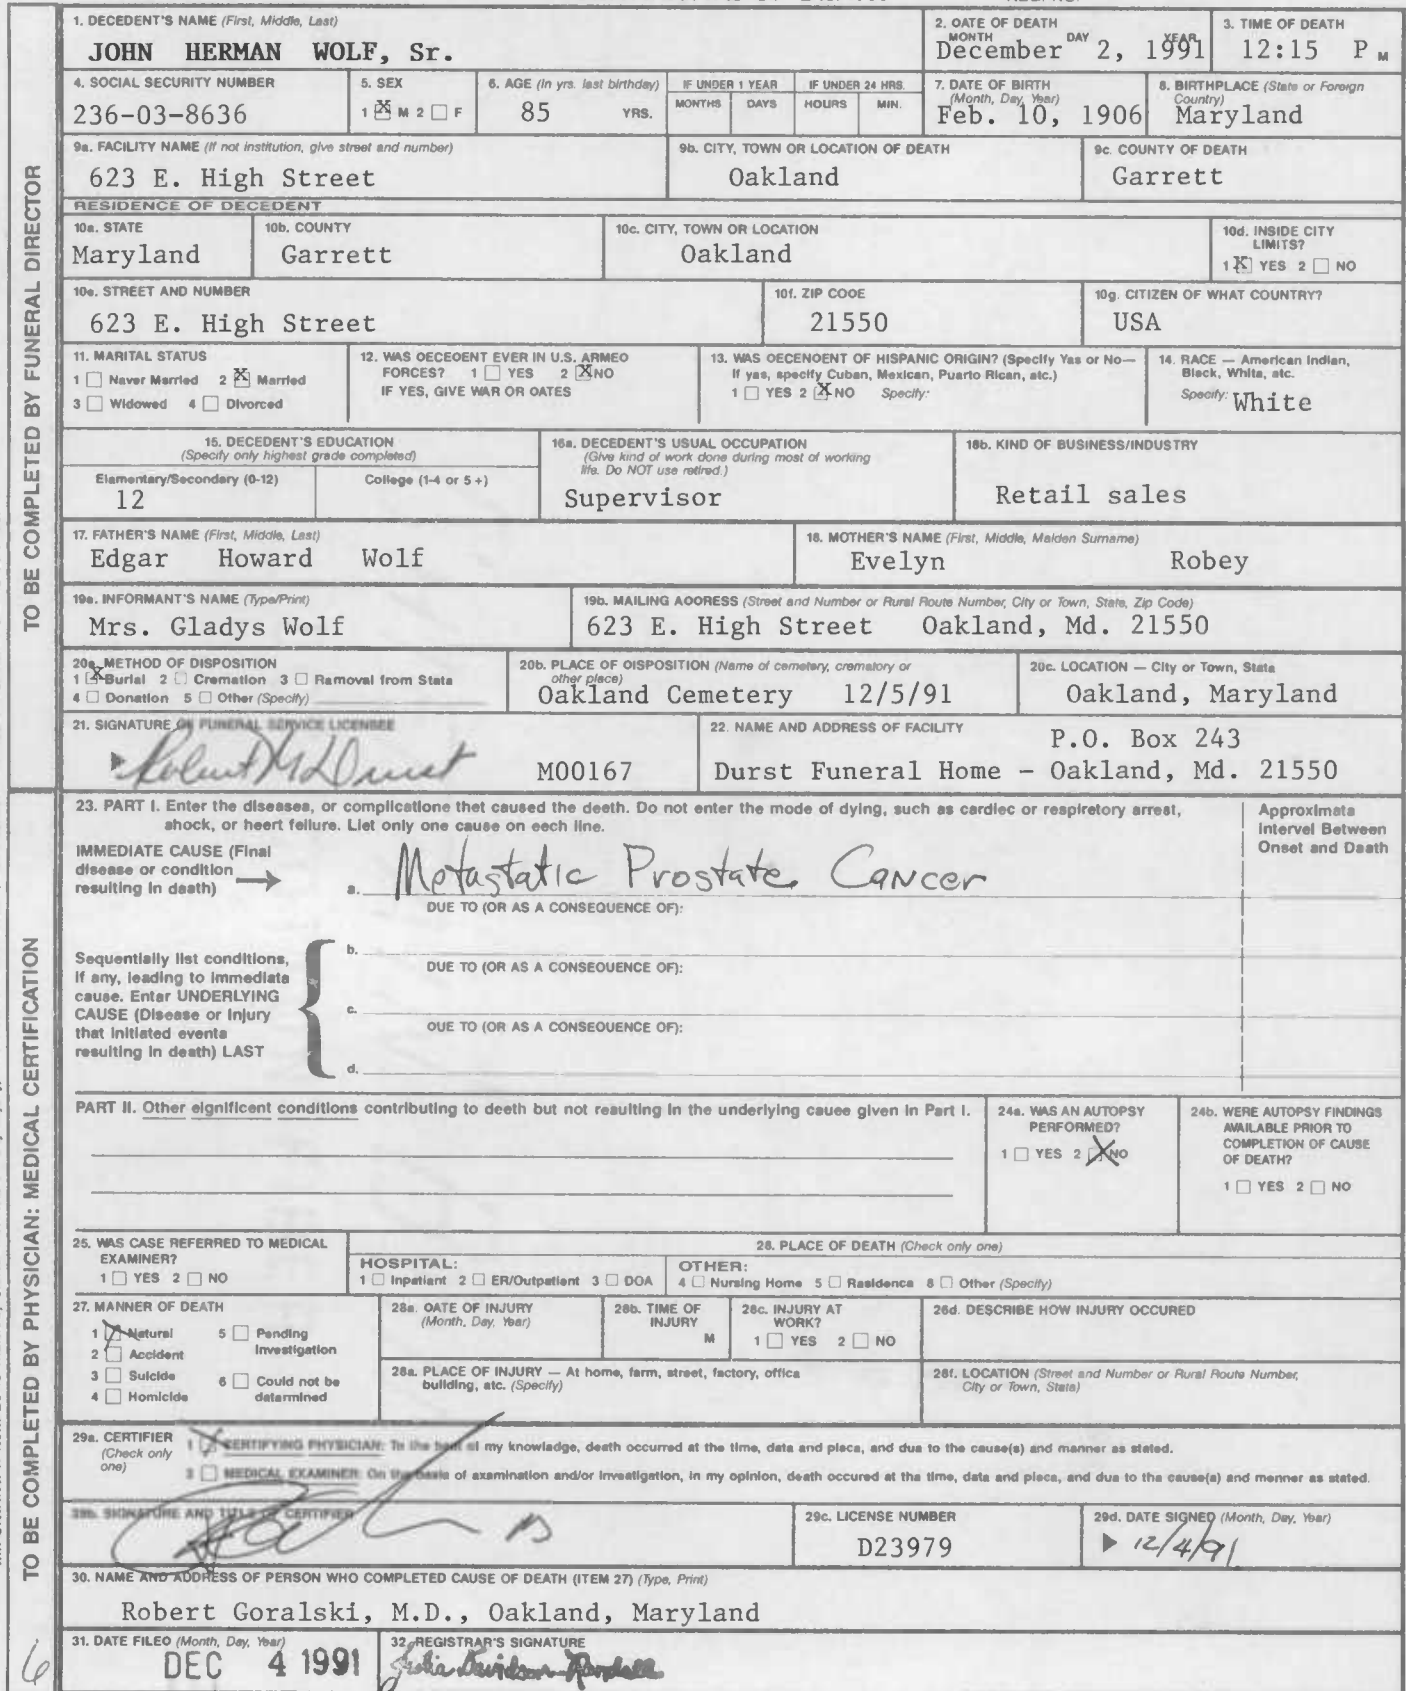 1. DECEDENT'S NAME (First, Middle, Last)
JOHN HERMAN WOLF, Sr.
2. DATE OF DEATH
MONTH DAY YEAR
December 2, 1991
3. TIME OF DEATH
12:15 P M
4. SOCIAL SECURITY NUMBER
236-03-8636
5. SEX
1 X M 2 F
6. AGE (In yrs. last birthday)
85 YRS.
IF UNDER 1 YEAR
MONTHS DAYS
IF UNDER 24 HRS.
HOURS MIN.
7. DATE OF BIRTH
(Month, Day, Year)
Feb. 10, 1906
8. BIRTHPLACE (State or Foreign
Country)
Maryland
9a. FACILITY NAME (If not institution, give street and number)
623 E. High Street
9b. CITY, TOWN OR LOCATION OF DEATH
Oakland
9c. COUNTY OF DEATH
Garrett
RESIDENCE OF DECEDENT
10a. STATE
Maryland
10b. COUNTY
Garrett
10c. CITY, TOWN OR LOCATION
Oakland
10d. INSIDE CITY
LIMITS?
1 X YES 2 NO
10e. STREET AND NUMBER
623 E. High Street
10f. ZIP CODE
21550
10g. CITIZEN OF WHAT COUNTRY?
USA
11. MARITAL STATUS
1 Never Married 2 X Married
3 Widowed 4 Divorced
12. WAS DECEDENT EVER IN U.S. ARMED
FORCES? 1 YES 2 X NO
IF YES, GIVE WAR OR DATES
13. WAS DECENDENT OF HISPANIC ORIGIN? (Specify Yes or No—
If yes, specify Cuban, Mexican, Puerto Rican, etc.)
1 YES 2 X NO Specify:
14. RACE — American Indian,
Black, White, etc.
Specify: White
15. DECEDENT'S EDUCATION
(Specify only highest grade completed)
Elementary/Secondary (0-12) College (1-4 or 5+)
12
16a. DECEDENT'S USUAL OCCUPATION
(Give kind of work done during most of working
life. Do NOT use retired.)
Supervisor
16b. KIND OF BUSINESS/INDUSTRY
Retail sales
17. FATHER'S NAME (First, Middle, Last)
Edgar Howard Wolf
18. MOTHER'S NAME (First, Middle, Maiden Surname)
Evelyn Robey
19a. INFORMANT'S NAME (Type/Print)
Mrs. Gladys Wolf
19b. MAILING ADDRESS (Street and Number or Rural Route Number, City or Town, State, Zip Code)
623 E. High Street Oakland, Md. 21550
20a. METHOD OF DISPOSITION
1 X Burial 2 Cremation 3 Removal from State
4 Donation 5 Other (Specify)
20b. PLACE OF DISPOSITION (Name of cemetery, crematory or
other place)
Oakland Cemetery 12/5/91
20c. LOCATION — City or Town, State
Oakland, Maryland
21. SIGNATURE OF FUNERAL SERVICE LICENSEE
Robert M Durst
M00167
22. NAME AND ADDRESS OF FACILITY
P.O. Box 243
Durst Funeral Home - Oakland, Md. 21550
TO BE COMPLETED BY FUNERAL DIRECTOR
23. PART I. Enter the diseases, or complications that caused the death. Do not enter the mode of dying, such as cardiac or respiratory arrest,
shock, or heart failure. List only one cause on each line.
Approximate
Interval Between
Onset and Death
IMMEDIATE CAUSE (Final
disease or condition
resulting in death)
a. Metastatic Prostate Cancer
DUE TO (OR AS A CONSEQUENCE OF):
Sequentially list conditions,
if any, leading to immediate
cause. Enter UNDERLYING
CAUSE (Disease or injury
that initiated events
resulting in death) LAST
b.
DUE TO (OR AS A CONSEQUENCE OF):
c.
DUE TO (OR AS A CONSEQUENCE OF):
d.
PART II. Other significant conditions contributing to death but not resulting in the underlying cause given in Part I.
24a. WAS AN AUTOPSY
PERFORMED?
1 YES 2 X NO
24b. WERE AUTOPSY FINDINGS
AVAILABLE PRIOR TO
COMPLETION OF CAUSE
OF DEATH?
1 YES 2 NO
25. WAS CASE REFERRED TO MEDICAL
EXAMINER?
1 YES 2 NO
26. PLACE OF DEATH (Check only one)
HOSPITAL:
1 Inpatient 2 ER/Outpatient 3 DOA
OTHER:
4 Nursing Home 5 Residence 6 Other (Specify)
27. MANNER OF DEATH
1 Natural 5 Pending
Investigation
2 Accident
3 Suicide 6 Could not be
determined
4 Homicide
28a. DATE OF INJURY
(Month, Day, Year)
28b. TIME OF
INJURY
M
28c. INJURY AT
WORK?
1 YES 2 NO
28d. DESCRIBE HOW INJURY OCCURED
28e. PLACE OF INJURY — At home, farm, street, factory, office
building, etc. (Specify)
28f. LOCATION (Street and Number or Rural Route Number,
City or Town, State)
29a. CERTIFIER
(Check only
one)
1 CERTIFYING PHYSICIAN: To the best of my knowledge, death occurred at the time, date and place, and due to the cause(s) and manner as stated.
2 MEDICAL EXAMINER: On the basis of examination and/or investigation, in my opinion, death occured at the time, date and place, and due to the cause(s) and manner as stated.
29b. SIGNATURE AND TITLE OF CERTIFIER
29c. LICENSE NUMBER
D23979
29d. DATE SIGNED (Month, Day, Year)
12/4/91
30. NAME AND ADDRESS OF PERSON WHO COMPLETED CAUSE OF DEATH (ITEM 27) (Type, Print)
Robert Goralski, M.D., Oakland, Maryland
31. DATE FILED (Month, Day, Year)
DEC 4 1991
32. REGISTRAR'S SIGNATURE
Julia Davidson-Randall
TO BE COMPLETED BY PHYSICIAN: MEDICAL CERTIFICATION
6